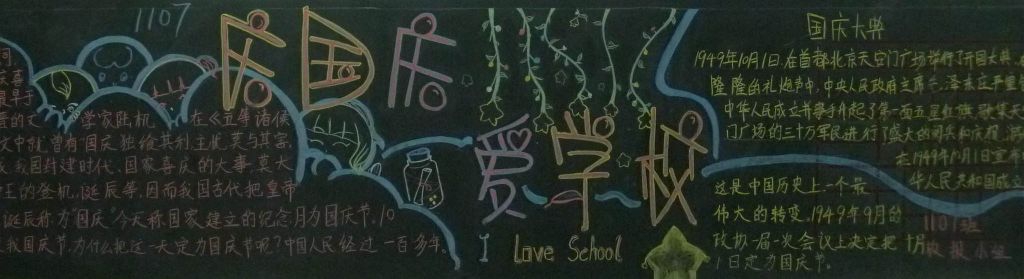 1107
庆国庆
爱学校
I Love School
国庆大典
1949年10月1日，在首都北京天安门广场举行了开国大典，在
隆隆的礼炮声中，中央人民政府主席
中华人民
起了第一面五星红旗，聚集天
门广场的三十万军民进行了盛大的阅兵和庆祝
在1949年10月1日宣布
华人民共和国成立
这是中国历史上一个最
伟大的转变，1949年9月的
政协一届一次会议上决定把十月
1日定为国庆节。
1107班
小组
词
喜
最早
晋的文学家陆机 在《五等诸侯
文中就曾有国庆独给其利，主忧莫与其害，
我国封建时代、国家喜庆的大事，莫大
王的登机，诞辰等，因而我国古代把皇帝
诞辰称为国庆 今天称国家建立的纪念月为国庆节，10
我国庆节，为什么把这一天定为国庆节呢？中国人民经过一百多年